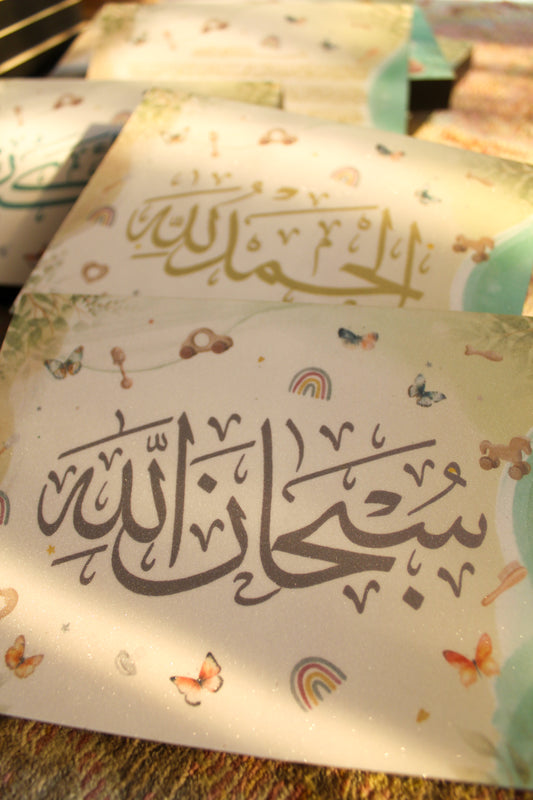 الحمد لله
سُبْحَانَ اللَّه